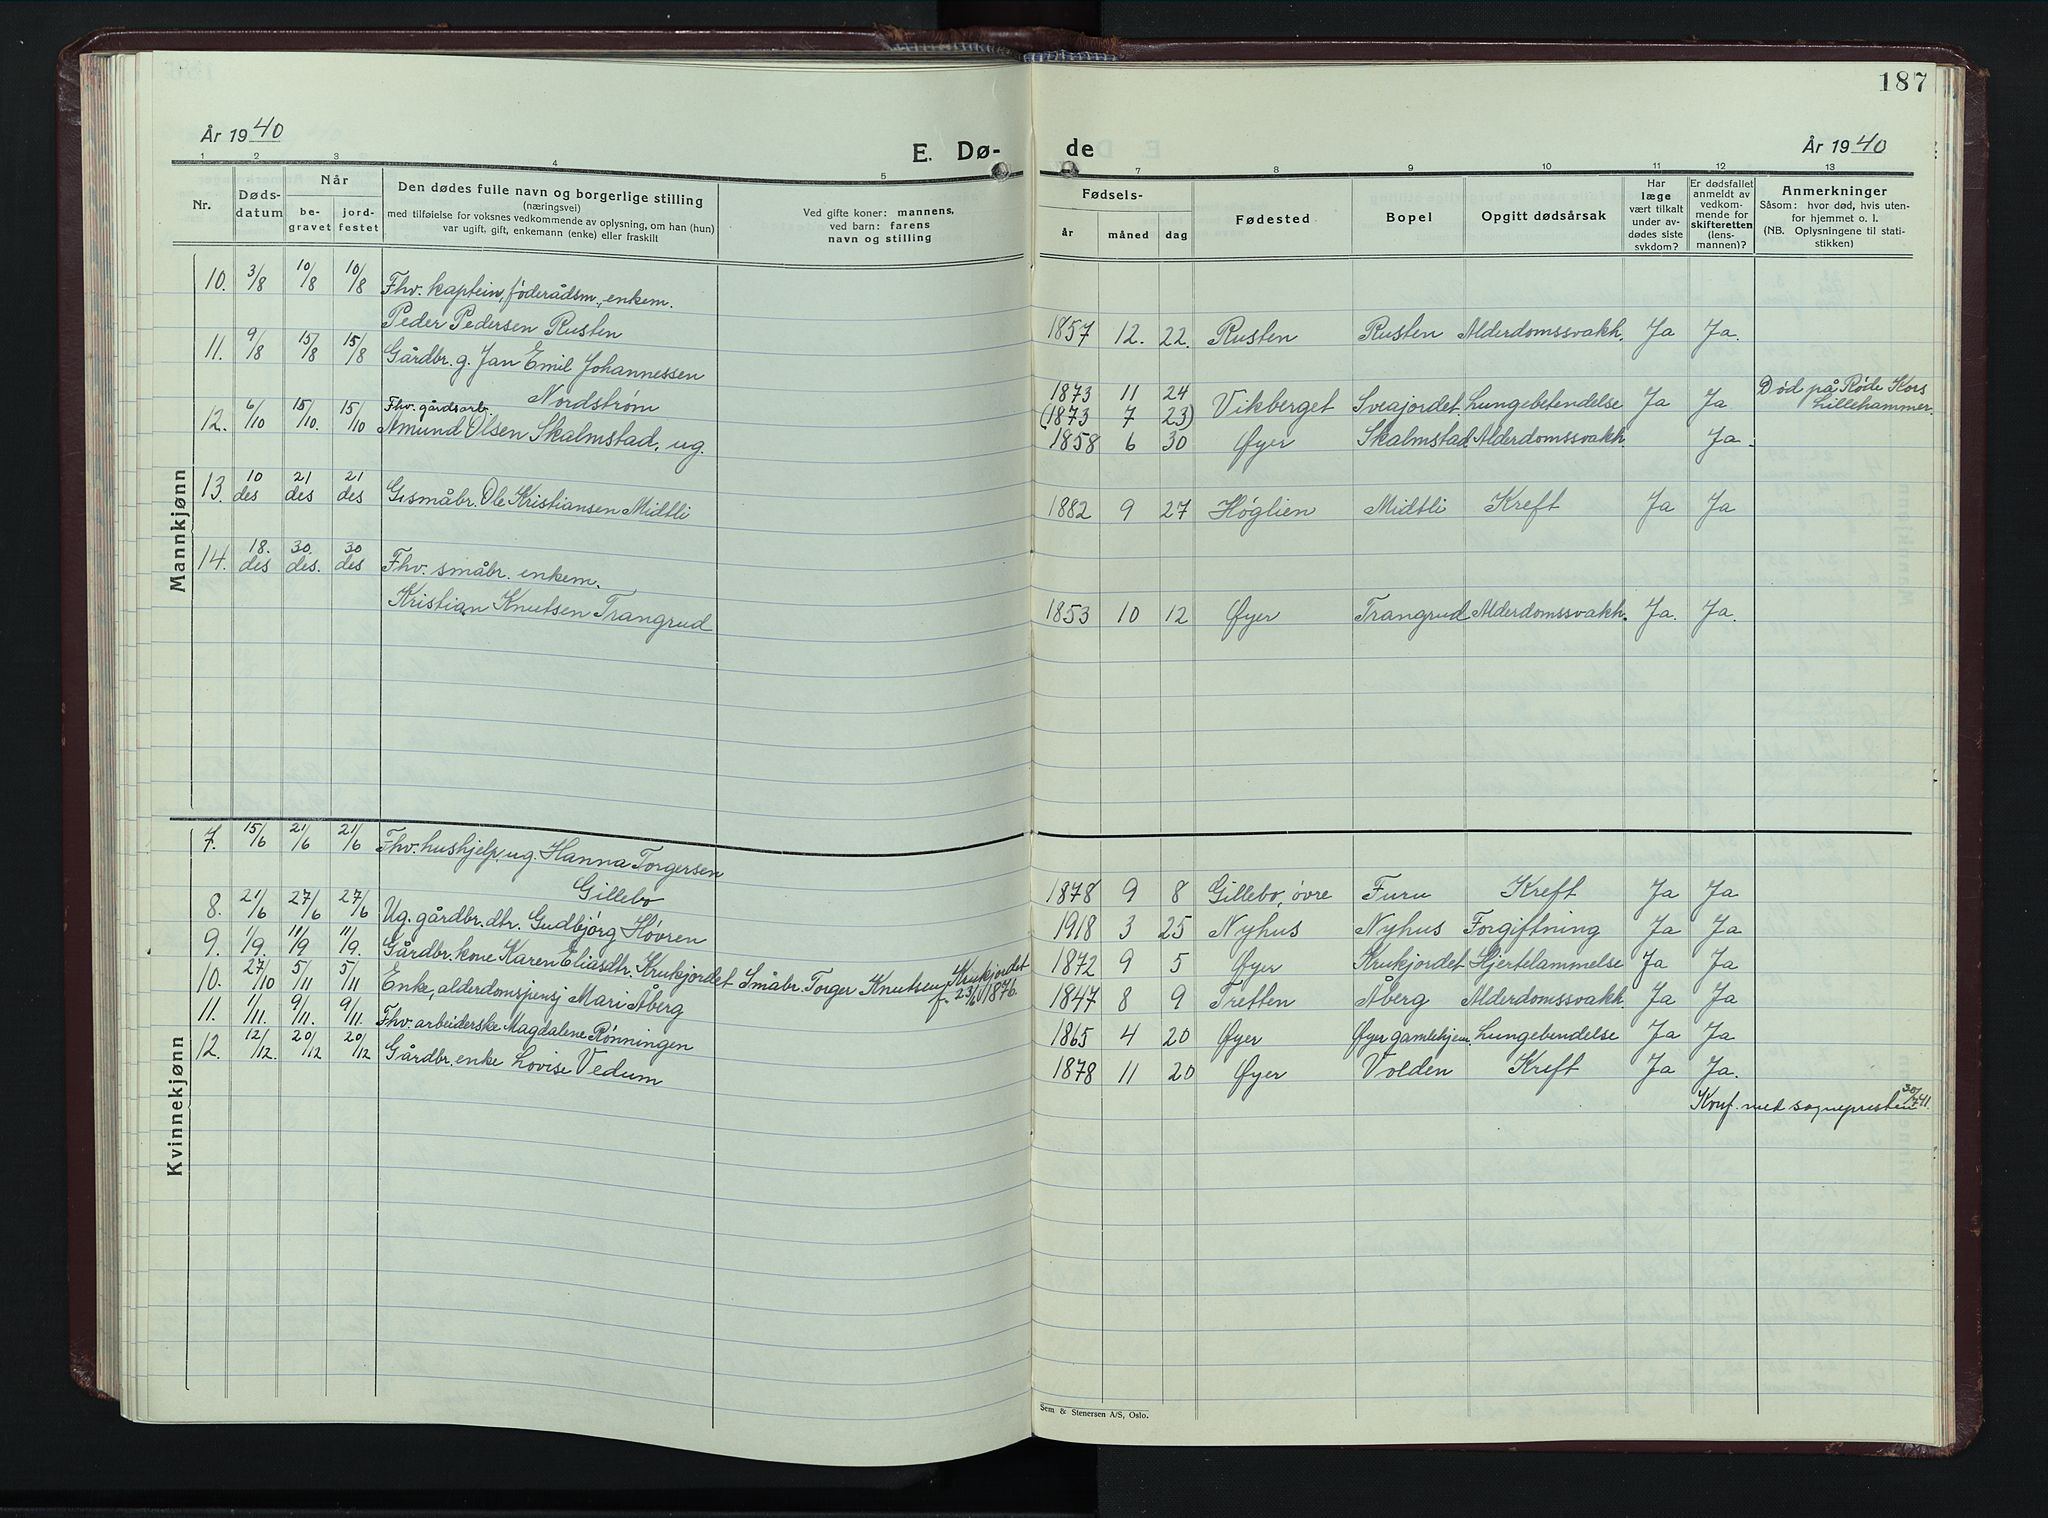 187
År 1940
E. Dø-
de
År 1940
1 2 3 4 5 7 8 9 10 11 12 13
Nr.
Døds-
datum
Når
be-
gravet
jord-
festet
Den dødes fulle navn og borgerlige stilling
(næringsvei)
med tilføielse for voksnes vedkommende av oplysning, om han (hun)
var ugift, gift, enkemann (enke) eller fraskilt
Ved gifte koner: mannens,
ved barn: farens
navn og stilling
Fødsels-
år måned dag
Fødested
Bopel
Opgitt dødsårsak
Har
læge
vært tilkalt
under av-
dødes siste
sykdom?
Er dødsfallet
anmeldt av
vedkom-
mende for
skifteretten
(lens-
mannen)?
Anmerkninger
Såsom: hvor død, hvis uten-
for hjemmet o. l.
(NB. Oplysningene til stati-
stikken)
Mannkjønn
10. 3/8 10/8 10/8 Fhv. kaptein, føderådsm., enkem.
Peder Pedersen Rusten 1857 12. 22. Rusten Rusten Alderdomssvakh. Ja Ja.
11. 9/8 15/8 15/8 Gårdbr. g. Jan Emil Johannessen
Nordstrøm 1873 11 24 Vikberget Sveajordet Lungebetendelse Ja Ja Død på Røde Kors
(1873 7 23) Lillehammer.
12. 6/10 15/10. 15/10 Fhv. gårdsarb.
Amund Olsen Skalmstad, ug. 1858 6 30 Øyer Skalmstad Alderdomssvakh. Ja.
13. 10 des 21 des 21 des G. småbr. Ole Kristiansen Midtli 1882 9 27 Høglien Midtli Kreft Ja Ja
14. 18. des 30. des. 30 des Fhv. småbr. enkem.
Kristian Knutsen Trangrud 1853 10 12 Øyer Trangrud Alderdomssvakh. Ja. Ja.
Kvinnekjønn
7. 15/6 21/6 21/6 Fhv. hushjelp, ug. Hanna Torgersen
Gillebo 1878 9 8 Gillebo, øvre Furu Kreft Ja Ja
8. 21/6 27/6 27/6 Ug. gårdbr. dtr. Gudbjörg Høvren 1918 3 25 Nyhus Nyhus Forgiftning Ja Ja
9. 1/9. 11/9 11/9. Gårdbr. kone Karen Eliasdtr. Krukjordet Småbr. Torger Knutsen Krukjordet 1872 9 5 Øyer Krukjordet Hjertelammelse Ja Ja
f. 23/6 1876.
10. 27/10 5/11 5/11 Enke, alderdomspensj Mari Åberg 1847 8 9 Tretten Åberg Alderdomssvakh. Ja Ja
11. 1/11. 9/11. 9/11. Fhv. arbeiderske Magdalene Rønningen 1865 4 20 Øyer Øyer gamlehjem. Lungebendelse Ja Ja
12. 12/12. 20/12 20/12 Gårdbr. enke Lovise Vedum 1878 11 20 Øyer Volden Kreft Ja Ja.
Konf. med sogneprestens 30/7 41.
Sem & Stenersen A/S, Oslo.